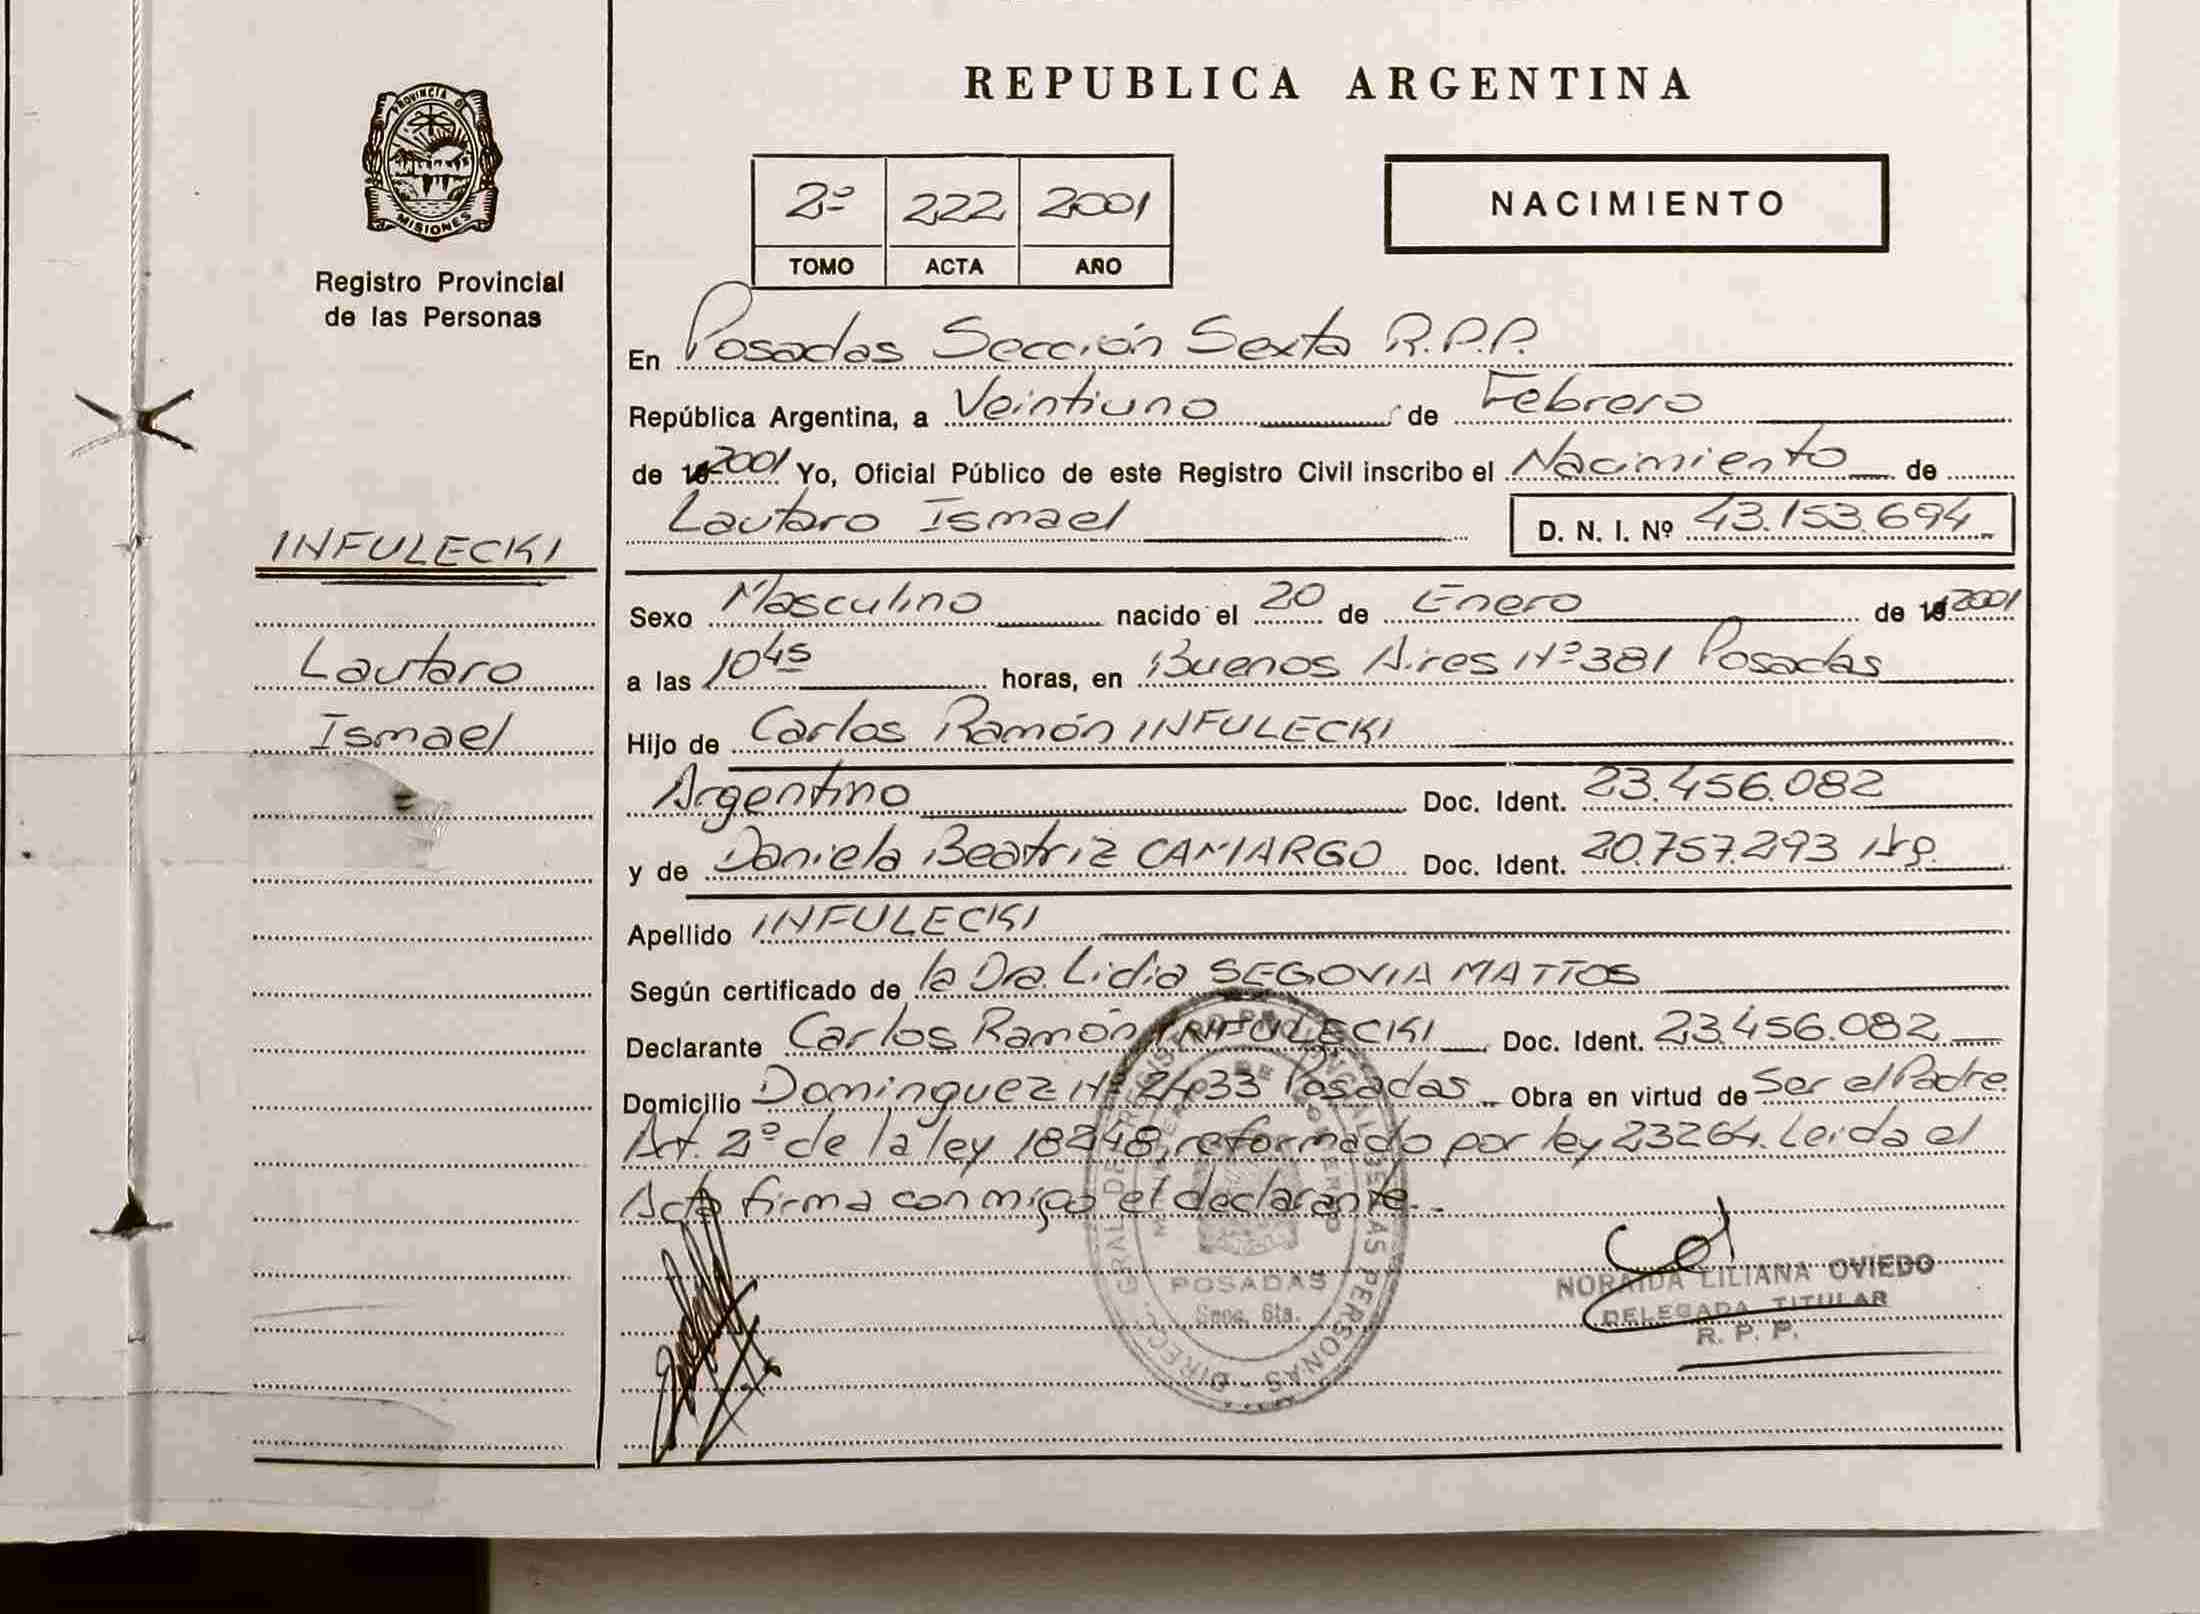 PROVINCIA DE
MISIONES
Registro Provincial
de las Personas
INFULECKI
Lautaro
Ismael
REPUBLICA ARGENTINA
2º 222 2001
TOMO ACTA AÑO
NACIMIENTO
En Posadas Sección Sexta R.P.P.
República Argentina, a Veintiuno de Febrero
de 2001 Yo, Oficial Público de este Registro Civil inscribo el Nacimiento de
Lautaro Ismael D. N. I. Nº 43.153.694
Sexo Masculino nacido el 20 de Enero de 2001
a las 10 45 horas, en Buenos Aires Nº 381 Posadas
Hijo de Carlos Ramón INFULECKI
Argentino Doc. Ident. 23.456.082
y de Daniela Beatriz CAMARGO Doc. Ident. 20.757.293 Arg.
Apellido INFULECKI
Según certificado de la Dra. Lidia SEGOVIA MATTOS
Declarante Carlos Ramón INFULECKI Doc. Ident. 23.456.082
Domicilio Dominguez Nº 2433 Posadas Obra en virtud de Ser el Padre.
Art. 2º de la ley 18248, reformado por ley 23264. Leida el
Acta firma conmigo el declarante.
POSADAS
Secc. 6ta.
NORAIDA LILIANA OVIEDO
DELEGADA TITULAR
R. P. P.